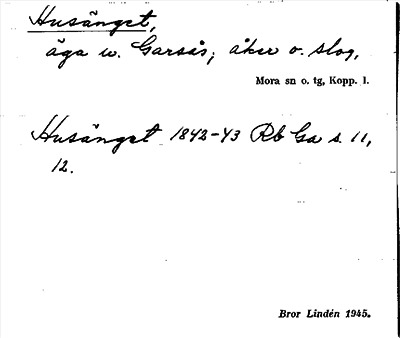 Husänget,
äga w. Garsås; åker o. slog,
Mora sn o. tg, Kopp. l.
Husänget 1842-43 Rb Ga s. 11,
12.
Bror Lindén 1945.